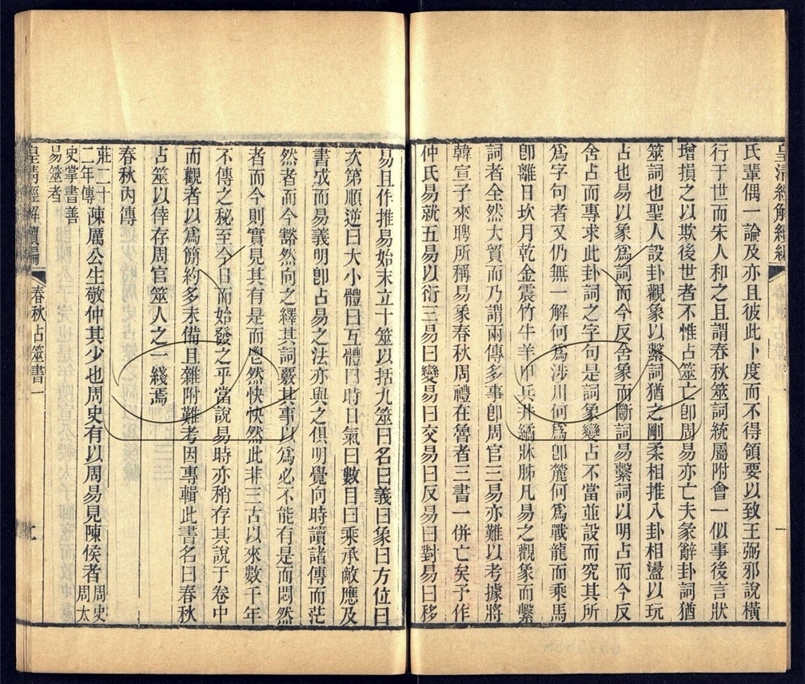 皇清經解續編
氏輩偶一論及亦且彼此卜度而不得領要以致王弼邪說橫
行于世而宋人和之且謂春秋筮詞統屬附會一似事後言狀
增損之以欺後世者不惟占筮亡卽周易亦亡夫彖辭卦詞猶
筮詞也聖人設卦觀象以繫詞猶之剛柔相推八卦相盪以玩
占也易以象爲詞而今反舍象而斷詞易繫詞以明占而今反
舍占而專求此卦詞之字句是詞象變占不當並設而究其所
爲字句者又仍無一解何爲涉川何爲卽麓何爲戰龍而乘馬
卽離日坎月乾金震竹牛羊甲兵井繘牀胏凡易之觀象而繫
詞者全然大貿而乃謂兩傳多事卽周官三易亦難以考據將
韓宣子來聘所稱易象春秋周禮在魯者三書一併亡矣予作
仲氏易就五易以衍三易曰變易曰交易曰反易曰對易曰移
易且作推易始末立十筮以括九筮曰名曰義曰象曰方位曰
次第順逆曰大小體曰互體曰時日氣曰數目曰乘承敵應及
書成而易義明卽占易之法亦與之俱明覺向時讀諸傳而茫
然者而今豁然向之繹其詞覈其事以爲必不能有是而悶然
者而今則實見其有是而鬯然快快然此非三古以來數千年
不傳之秘至今日而始發之乎當說易時亦稍存其說于卷中
而觀者以爲簡約多未備且雜附難考因專輯此書名曰春秋
占筮以倖存周官筮人之一綫焉
春秋內傳
莊二十二年傳陳厲公生敬仲其少也周史有以周易見陳侯者周史周太
史掌書善
易筮者
皇清經解續編
春秋占筮書一